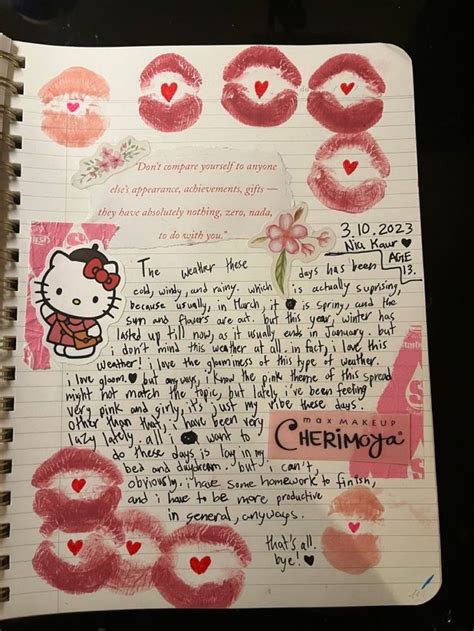 "Don't compare yourself to anyone
else's appearance, achievements, gifts —
they have absolutely nothing, zero, nada,
to do with you."
3.10.2023
Niki Kaur
AGE
13.
The weather these days has been
cold, windy, and rainy. which is actually suprising,
because usually, in March, it is spring, and the
sun and flavers are eat. but this year, winter has
lasted up till now, as it usually ends in January. but
i don't mind this weather at all. in fact, i love this
weather! i love the gloominess of this type of weather.
i love gloom. but anyways, i know the pink theme of this spread
might not match the topic, but lately i've been feeling
very pink and girly, it's just my vibe these days.
other than that, i have been very
lazy lately. all i want to
do these days is lay in my
bed and daydream. but i can't,
obviously. i have some homework to finish,
and i have to be more productive
in general, anyways.
that's all.
bye!
max MAKEUP
CHERIMOYA